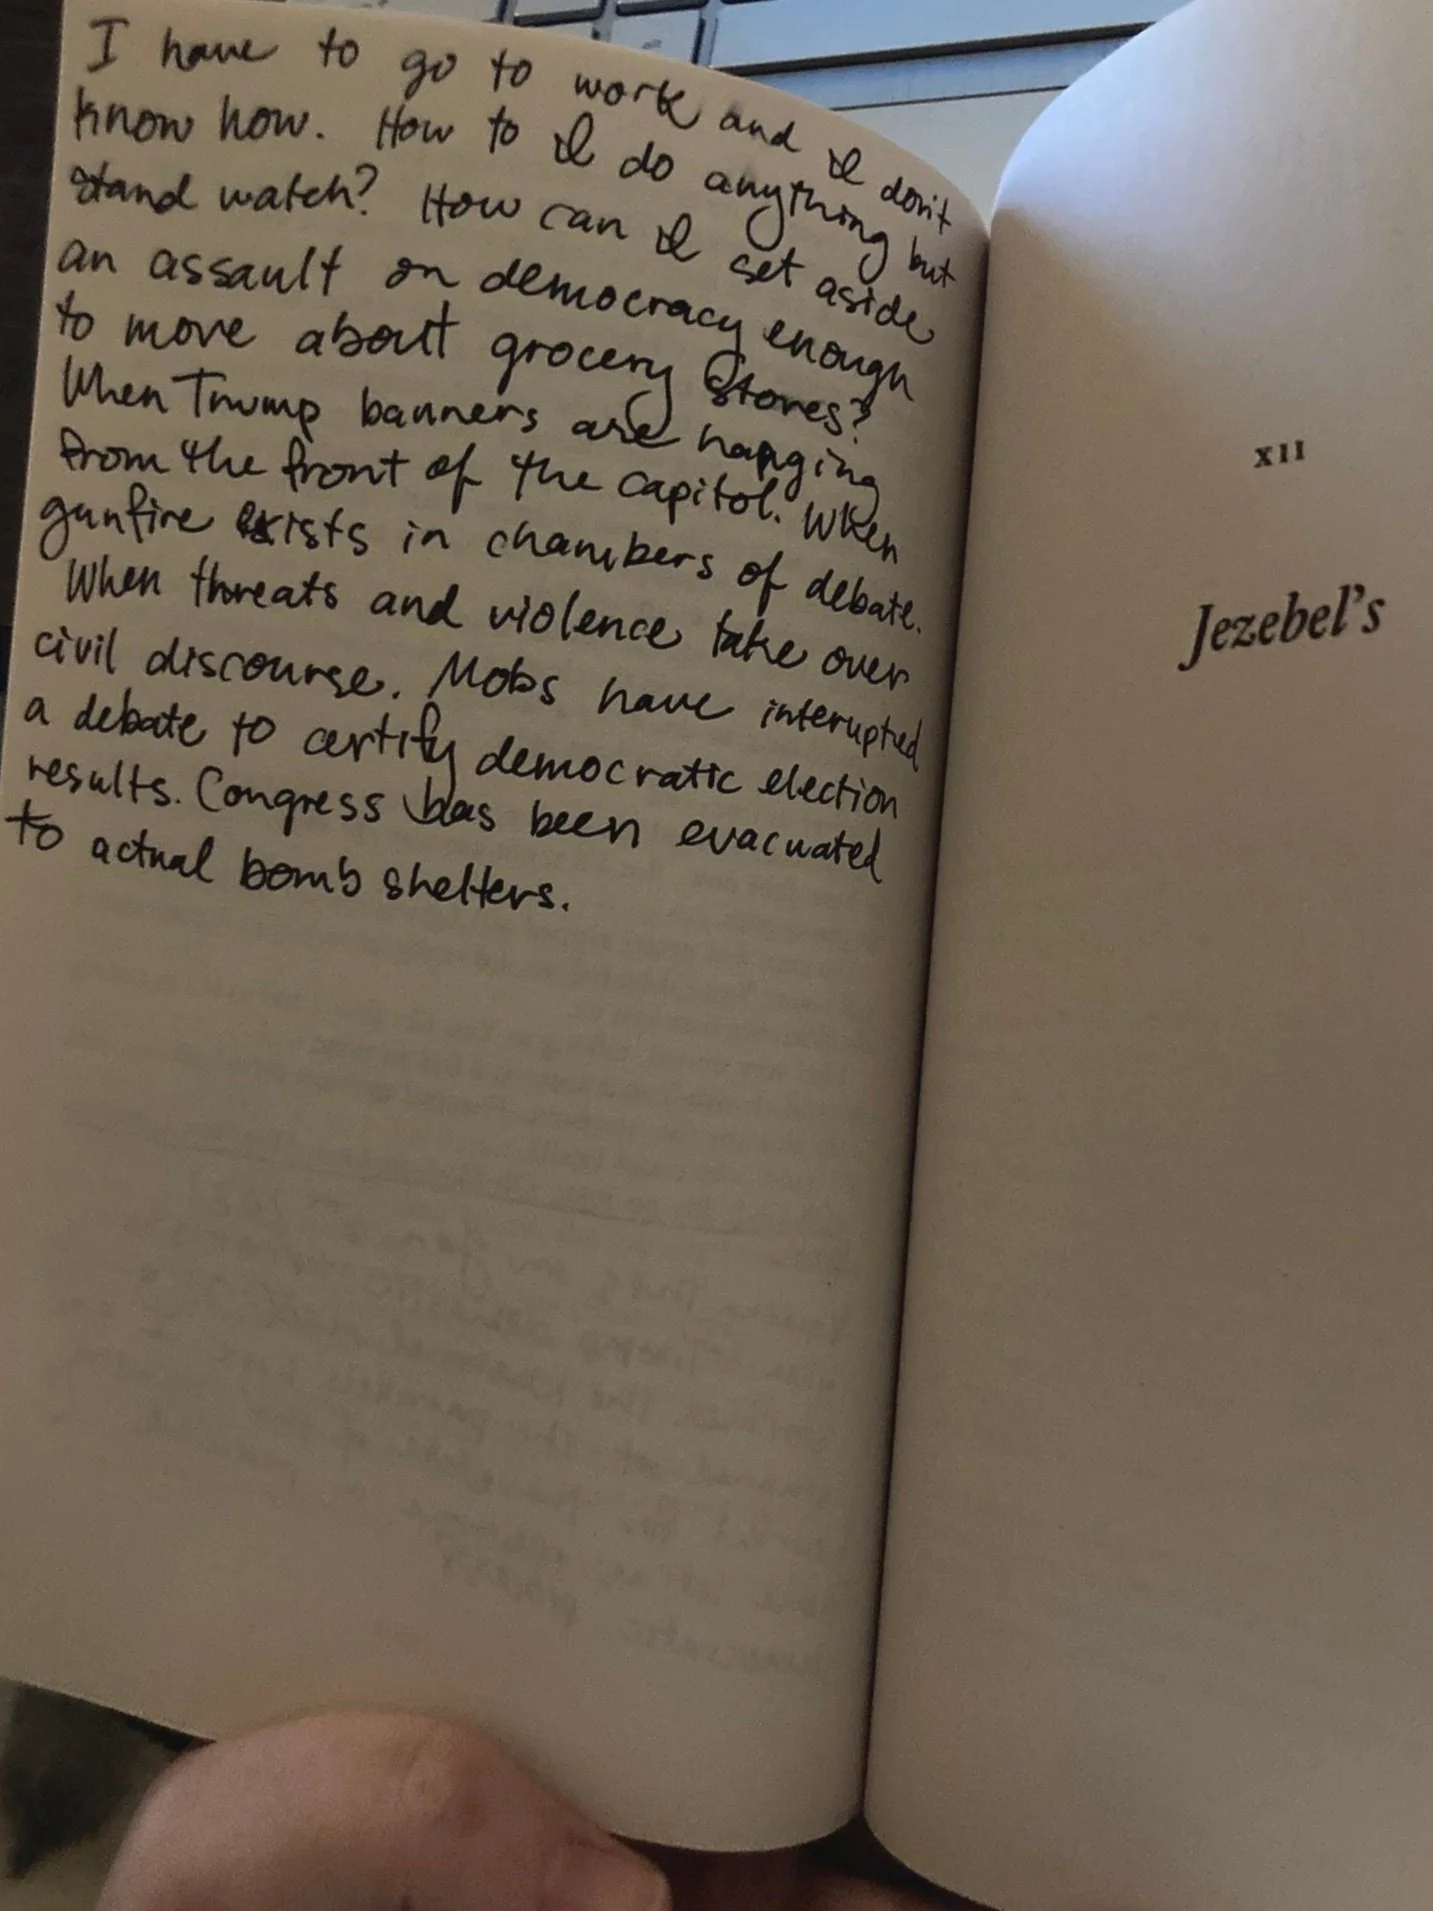 I have to go to work and I don't
know how. How to I do anything but
stand watch? How can I set aside
an assault on democracy enough
to move about grocery stores?
When Trump banners are hanging
from the front of the capitol. When
gunfire exists in chambers of debate.
When threats and violence take over
civil discourse. Mobs have interupted
a debate to certify democratic election
results. Congress has been evacuated
to actual bomb shelters.
XII
Jezebel's